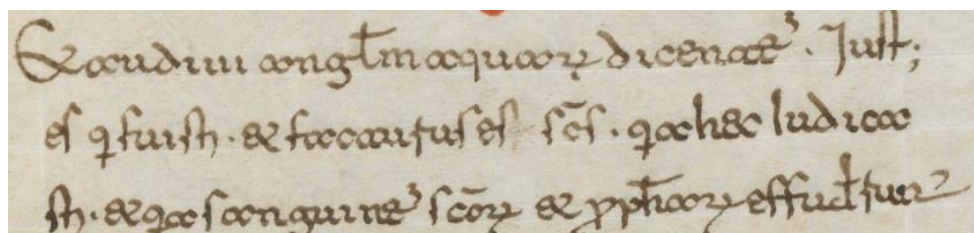 Et audiui angl̄m aquaꝝ dicentē. Just;
es q̇ fuisti. et factus es sc̄s. q̇a hec Iudica
sti. et q̇a sanguinē sc̄oꝝ et ꝓph̄aꝝ effud̄ꝉuer̄